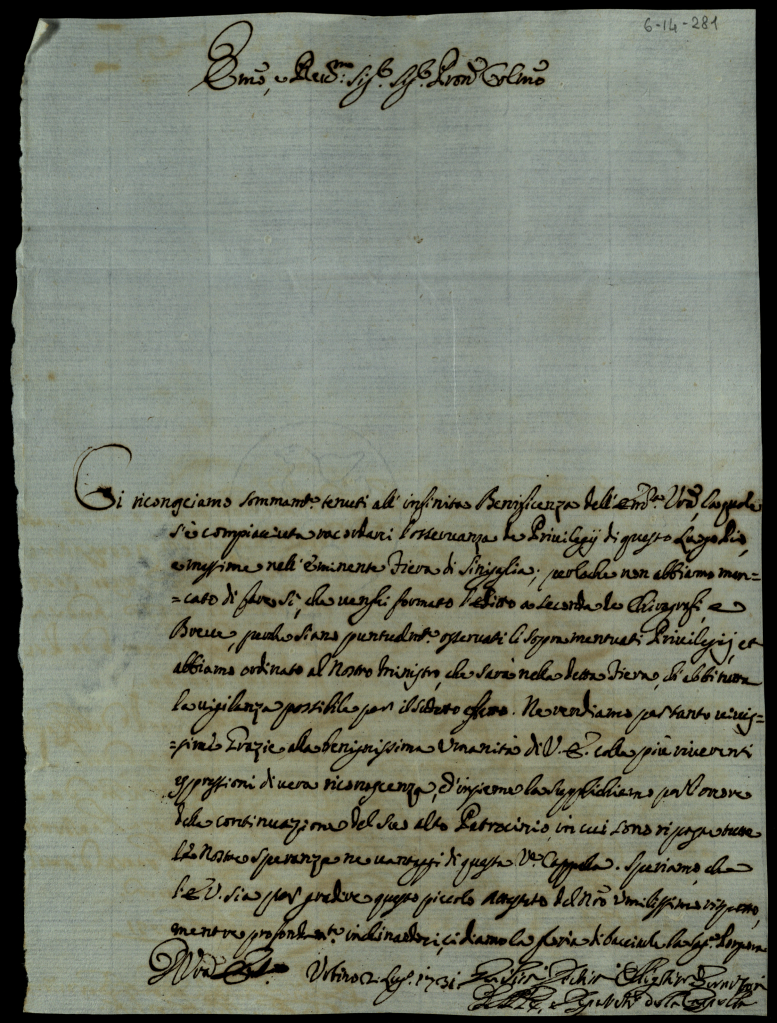 6-14-281
Emo, e Revmo: Sigr. Sigr. Pron Colmo
Ci riconosciamo sommamte. tenuti all' infinita Beneficenza dell' Emza. Vra, la quale
si è compiaciuta racordarci l'osservanza de Privilegij di questo Luogo Pio,
e massime nell' eminente Fiera di Sinigalia; perloche non abbiamo man=
=cato di fare sì, che venghi formato l'editto a seconda de Chirografi, e
Breve, perche siano puntualmte. osservati li sopramentuati Privilegij, et
abbiamo ordinato al Nostro Ministro, che sarà nella detta Fiera, di abbi tutta
la vigilanza possibile per il sudetto effetto. Ne rendiamo per tanto vivis=
=sime Grazie alla benignissima Umanità di V. E. colle più riverenti
espressioni di vera riconoscenza, ed' insieme la supplichiamo per l'onore
della continuazione del Suo alto Patrocinio, in cui sono riposte tutte
le Nostre speranze ne vantaggi di questa Va. Cappella. Speriamo, che
l'E. V. sia per gradire questo piccolo attestato del Nro Umilissimo rispetto,
mentre profondamte. inchinandoci, ci diamo la gloria di bacciarle la Sag. Porpora
Di Vra Em.
Urbino 2 Lug. 1731
della Cappella